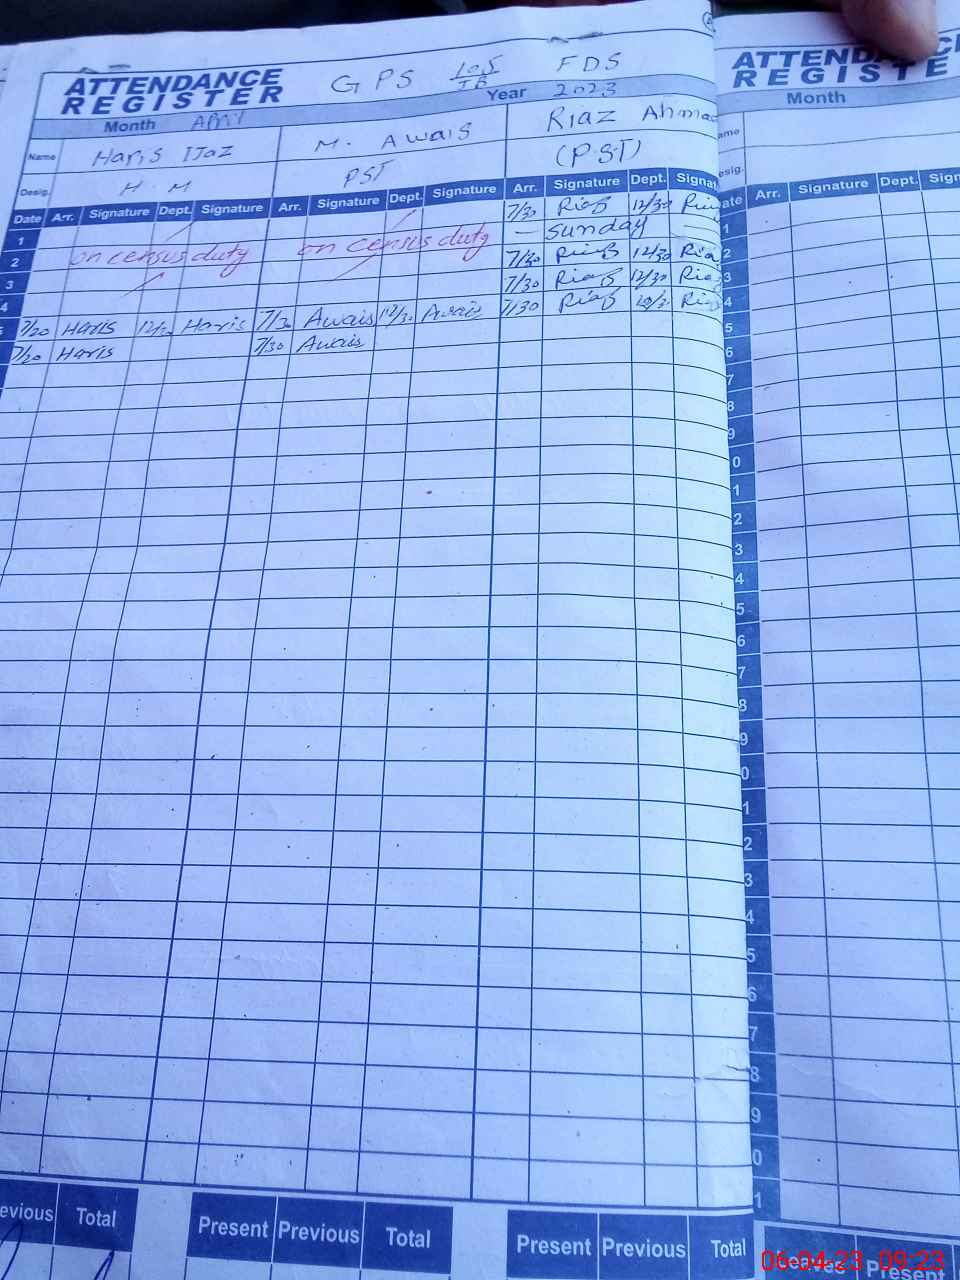 ATTENDANCE
REGISTER
GPS 105/JB FDS
Month April Year 2023
Name Haris IJaz M. Awais Riaz Ahmad
Desig. H.M PST (PST)
Date Arr. Signature Dept. Signature Arr. Signature Dept. Signature Arr. Signature Dept. Signat
1 7/30 Riaz 12/30 Riaz
2 on census duty on census duty — Sunday —
3 7/30 Riaz 12/30 Riaz
4 7/30 Riaz 12/30 Riaz
5 7/20 Haris 12/30 Haris 7/30 Awais 12/30 Awais 7/30 Riaz Riaz
7/20 Haris 7/30 Awais
evious Total Present Previous Total Present Previous Total
ATTENDANCE
REGISTE
Month
ame
esig.
ate Arr. Signature Dept. Sign
1
2
3
4
5
6
7
8
9
0
1
2
3
4
5
6
7
8
9
0
1
2
3
4
5
6
7
8
9
0
1
Leaves Present
06-04-23 09:23